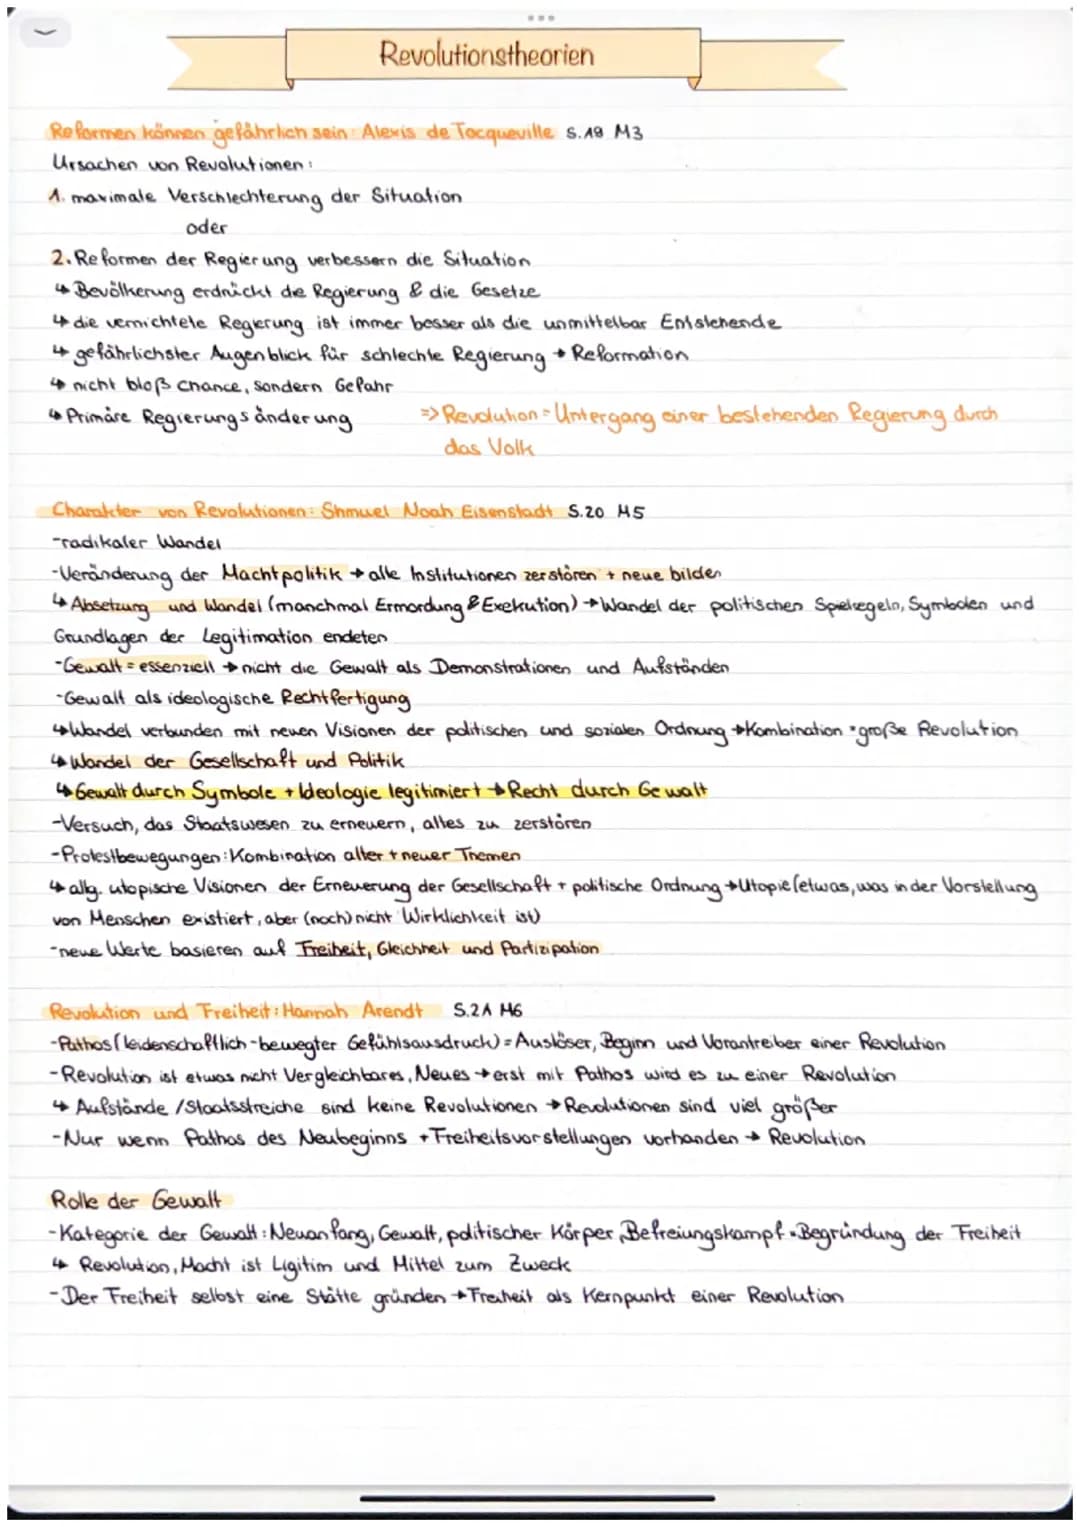 Revolutionstheorien
Reformen können gefährlich sein: Alexis de Tocqueville S.19 M3
Ursachen von Revolutionen:
1. maximale Verschlechterung der Situation
oder
2. Reformen der Regierung verbessern die Situation
↳ Bevölkerung erdrückt die Regierung & die Gesetze
↳ die vernichtete Regierung ist immer besser als die unmittelbar Entstehende
↳ gefährlichster Augenblick für schlechte Regierung → Reformation
↳ nicht bloß Chance, sondern Gefahr
↳ Primäre Regierungsänderung => Revolution = Untergang einer bestehenden Regierung durch
das Volk
Charakter von Revolutionen: Shmuel Noah Eisenstadt S.20 M5
-radikaler Wandel
-Veränderung der Machtpolitik → alle Institutionen zerstören + neue bilden
↳ Absetzung und Wandel (manchmal Ermordung & Exekution) → Wandel der politischen Spielregeln, Symbolen und
Grundlagen der Legitimation endeten
-Gewalt = essenziell → nicht die Gewalt als Demonstrationen und Aufständen
-Gewalt als ideologische Rechtfertigung
↳ Wandel verbunden mit neuen Visionen der politischen und sozialen Ordnung → Kombination = große Revolution
↳ Wandel der Gesellschaft und Politik
↳ Gewalt durch Symbole + Ideologie legitimiert → Recht durch Gewalt
-Versuch, das Staatswesen zu erneuern, alles zu zerstören
-Protestbewegungen: Kombination alter + neuer Themen
↳ allg. utopische Visionen der Erneuerung der Gesellschaft + politische Ordnung → Utopie (etwas, was in der Vorstellung
von Menschen existiert, aber (noch) nicht Wirklichkeit ist)
-neue Werte basieren auf Freiheit, Gleichheit und Partizipation
Revolution und Freiheit: Hannah Arendt S.21 M6
-Pathos (leidenschaftlich-bewegter Gefühlsausdruck) = Auslöser, Beginn und Vorantreiber einer Revolution
-Revolution ist etwas nicht Vergleichbares, Neues → erst mit Pathos wird es zu einer Revolution
↳ Aufstände / Staatsstreiche sind keine Revolutionen → Revolutionen sind viel größer
-Nur wenn Pathos des Neubeginns + Freiheitsvorstellungen vorhanden → Revolution
Rolle der Gewalt
-Kategorie der Gewalt: Neuanfang, Gewalt, politischer Körper, Befreiungskampf = Begründung der Freiheit
↳ Revolution, Macht ist Ligitim und Mittel zum Zweck
-Der Freiheit selbst eine Stätte gründen → Freiheit als Kernpunkt einer Revolution